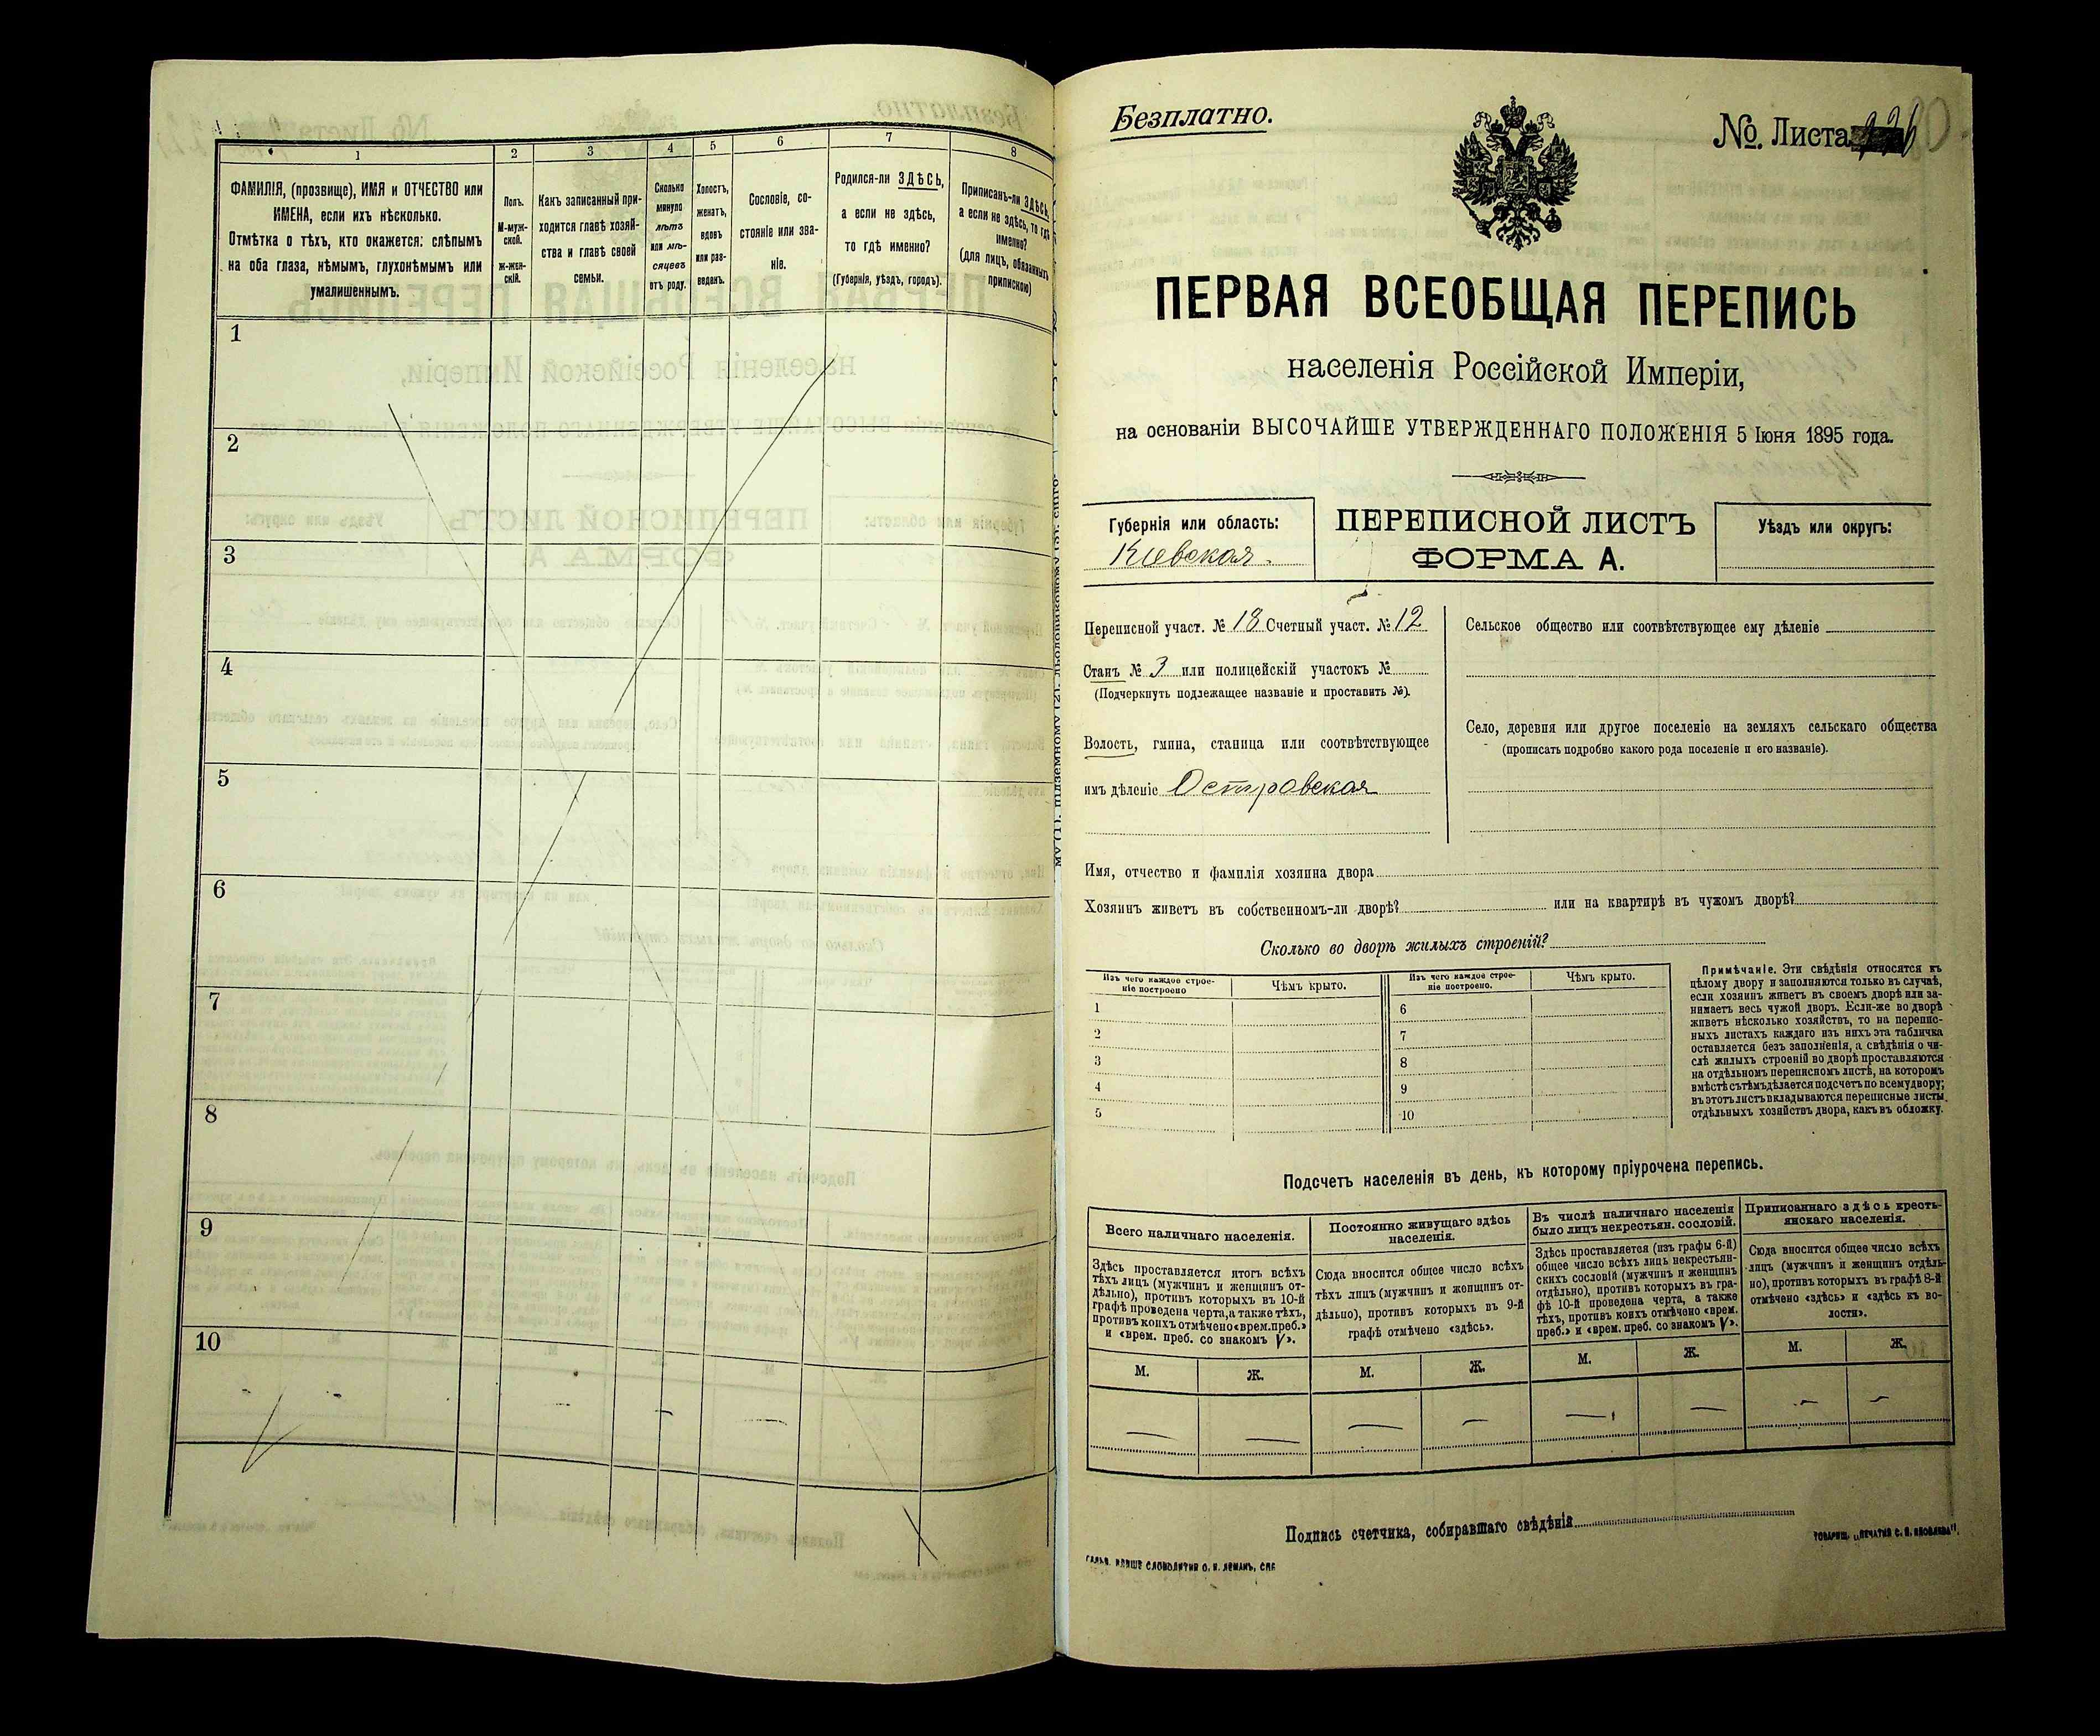 1
2
3
4
5
6
7
8
ФАМИЛІЯ, (прозвище), ИМЯ и ОТЧЕСТВО или
ИМЕНА, если ихъ нѣсколько.
Отмѣтка о тѣхъ, кто окажется: слѣпымъ
на оба глаза, нѣмымъ, глухонѣмымъ или
умалишеннымъ.
Полъ.
М-муж-
ской.
ж-жен-
скій.
Какъ записанный при-
ходится главѣ хозяй-
ства и главѣ своей
семьи.
Сколько
минуло
лѣтъ
или мѣ-
сяцевъ
отъ роду.
Холостъ,
женатъ,
вдовъ
или раз-
веденъ.
Сословіе, со-
стояніе или зва-
ніе.
Родился-ли ЗДѢСЬ,
а если не здѣсь,
то гдѣ именно?
(Губернія, уѣздъ, городъ).
Приписанъ-ли ЗДѢСЬ,
а если не здѣсь, то гдѣ
именно?
(для лицъ, обязанныхъ
припискою)
1
2
3
4
5
6
7
8
9
10
Безплатно.
№. Листа
ПЕРВАЯ ВСЕОБЩАЯ ПЕРЕПИСЬ
населенія Россійской Имперіи,
на основаніи ВЫСОЧАЙШЕ УТВЕРЖДЕННАГО ПОЛОЖЕНІЯ 5 Іюня 1895 года.
Губернія или область:
Кіевская.
ПЕРЕПИСНОЙ ЛИСТЪ
ФОРМА А.
Уѣздъ или округъ:
Переписной участ. № 18 Счетный участ. № 12
Станъ № 3 или полицейскій участокъ №
(Подчеркнуть подлежащее названіе и проставить №).
Волость, гмина, станица или соотвѣтствующее
имъ дѣленіе Островская
Сельское общество или соотвѣтствующее ему дѣленіе
Село, деревня или другое поселеніе на земляхъ сельскаго общества
(прописать подробно какого рода поселеніе и его названіе).
Имя, отчество и фамилія хозяина двора
Хозяинъ живетъ въ собственномъ-ли дворѣ? или на квартирѣ въ чужомъ дворѣ?
Сколько во дворѣ жилыхъ строеній?
Изъ чего каждое строе-
ніе построено
Чѣмъ крыто.
Изъ чего каждое строе-
ніе построено.
Чѣмъ крыто.
1
6
2
7
3
8
4
9
5
10
Примѣчаніе. Эти свѣдѣнія относятся къ
цѣлому двору и заполняются только въ случаѣ,
если хозяинъ живетъ въ своемъ дворѣ или за-
нимаетъ весь чужой дворъ. Если-же во дворѣ
живетъ нѣсколько хозяйствъ, то на перепис-
ныхъ листахъ каждаго изъ нихъ эта табличка
оставляется безъ заполненія, а свѣдѣнія о чи-
слѣ жилыхъ строеній во дворѣ проставляются
на отдѣльномъ переписномъ листѣ, на которомъ
вмѣстѣ съ тѣмъ дѣлается подсчетъ по всему двору;
въ этотъ листъ вкладываются переписные листы
отдѣльныхъ хозяйствъ двора, какъ въ обложку.
Подсчетъ населенія въ день, къ которому пріурочена перепись.
Всего наличнаго населенія.
Постоянно живущаго здѣсь
населенія.
Въ числѣ наличнаго населенія
было лицъ некрестьян. сословій.
Приписаннаго здѣсь кресть-
янскаго населенія.
Здѣсь проставляется итогъ всѣхъ
тѣхъ лицъ (мужчинъ и женщинъ от-
дѣльно), противъ которыхъ въ 10-й
графѣ проведена черта, а также тѣхъ,
противъ коихъ отмѣчено «врем. преб.»
и «врем. преб. со знакомъ V».
Сюда вносится общее число всѣхъ
тѣхъ лицъ (мужчинъ и женщинъ от-
дѣльно), противъ которыхъ въ 9-й
графѣ отмѣчено «здѣсь».
Здѣсь проставляется (изъ графы 6-й)
общее число всѣхъ лицъ некрестьян-
скихъ сословій (мужчинъ и женщинъ
отдѣльно), противъ которыхъ въ гра-
фѣ 10-й проведена черта, а также
тѣхъ, противъ коихъ отмѣчено «врем.
преб.» и «врем. преб. со знакомъ V».
Сюда вносится общее число всѣхъ
лицъ (мужчинъ и женщинъ отдѣль-
но), противъ которыхъ въ графѣ 8-й
отмѣчено «здѣсь» и «здѣсь въ во-
лости».
М.
Ж.
М.
Ж.
М.
Ж.
М.
Ж.
Подпись счетчика, собиравшаго свѣдѣнія
СЛОВОЛИТНЯ О. И. ЛЕМАНЪ, СПБ
ТОВАРИЩ. „ПЕЧАТНЯ С. П. ЯКОВЛЕВА".